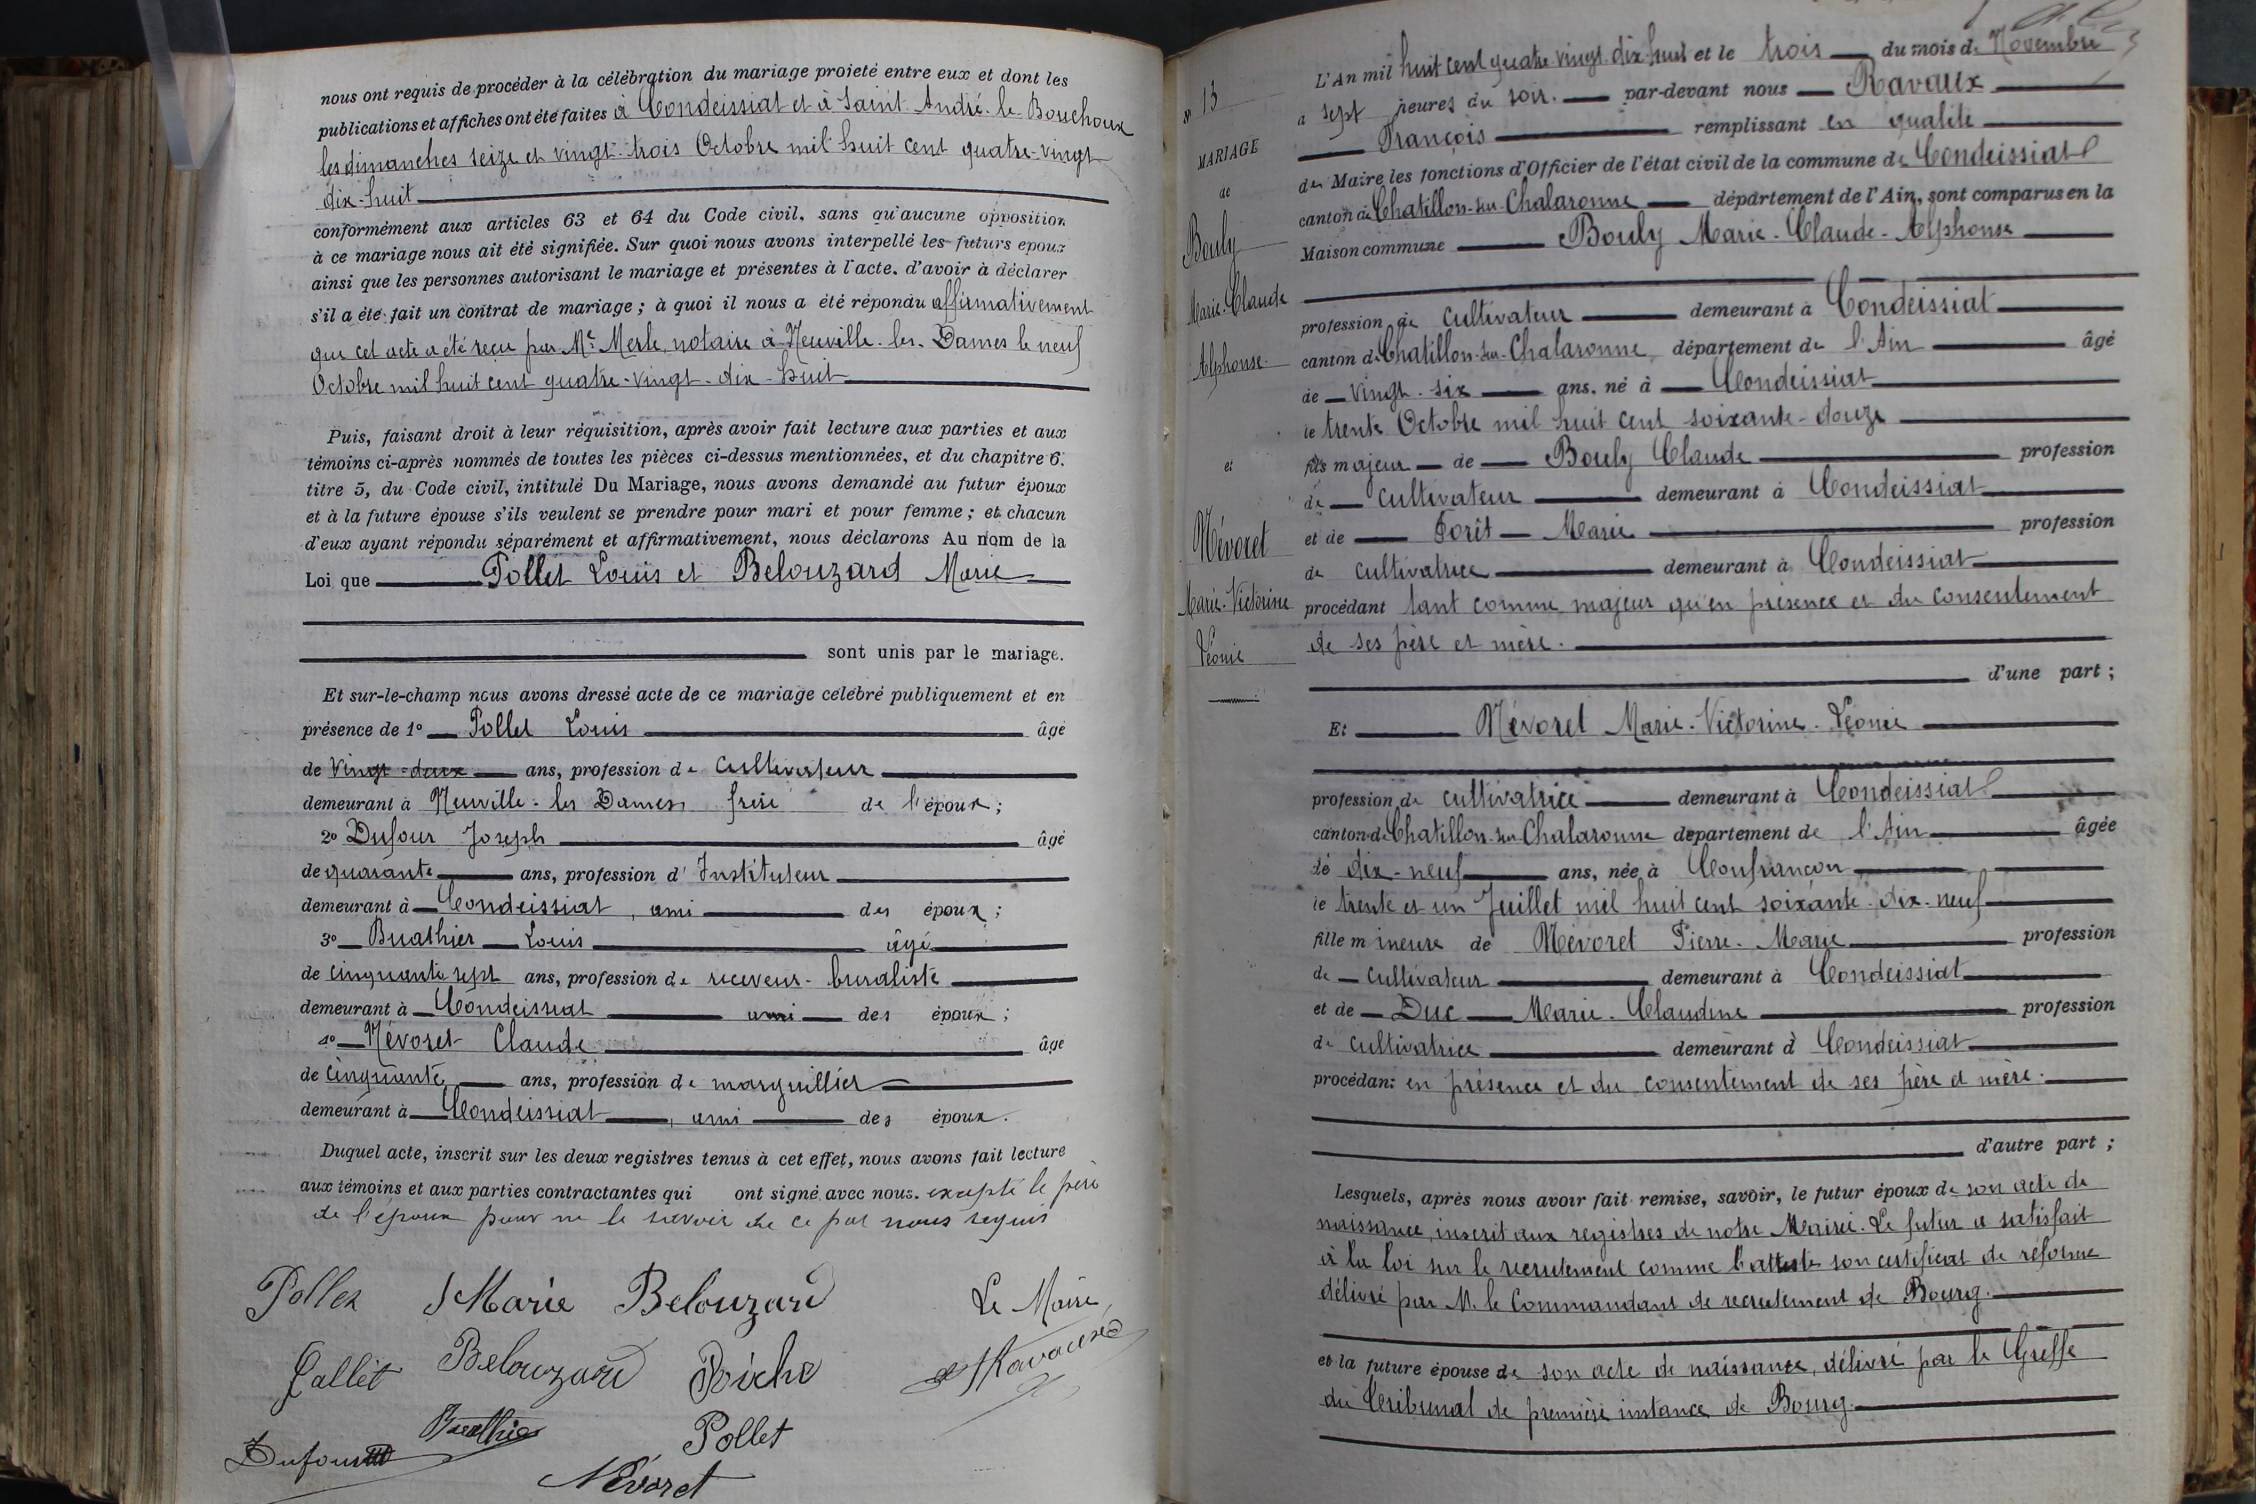 nous ont requis de procéder à la célébration du mariage projeté entre eux et dont les
publications et affiches ont été faites à Condeissiat et à Saint-André-le-Bouchoux
les dimanches seize et vingt-trois Octobre mil huit cent quatre-vingt
dix-huit
conformément aux articles 63 et 64 du Code civil, sans qu'aucune opposition
à ce mariage nous ait été signifiée. Sur quoi nous avons interpellé les futurs époux
ainsi que les personnes autorisant le mariage et présentes à l'acte, d'avoir à déclarer
s'il a été fait un contrat de mariage ; à quoi il nous a été répondu affirmativement
que cet acte a été reçu par Me Merle, notaire à Neuville-les-Dames le neuf
Octobre mil huit cent quatre-vingt-dix-huit
Puis, faisant droit à leur réquisition, après avoir fait lecture aux parties et aux
témoins ci-après nommés de toutes les pièces ci-dessus mentionnées, et du chapitre 6,
titre 5, du Code civil, intitulé Du Mariage, nous avons demandé au futur époux
et à la future épouse s'ils veulent se prendre pour mari et pour femme ; et chacun
d'eux ayant répondu séparément et affirmativement, nous déclarons Au nom de la
Loi que Pollet Louis et Belouzard Marie
sont unis par le mariage.
Et sur-le-champ nous avons dressé acte de ce mariage célébré publiquement et en
présence de 1° Pollet Louis âgé
de vingt-deux ans, profession de cultivateur
demeurant à Neuville-les Dames frère de l'époux ;
2° Dufour Joseph âgé
de quarante ans, profession d'Instituteur
demeurant à Condeissiat, ami des époux ;
3° Buathier Louis âgé
de cinquante sept ans, profession de receveur-buraliste
demeurant à Condeissiat ami des époux ;
4° Névoret Claude âgé
de cinquante ans, profession de marguillier
demeurant à Condeissiat, ami des époux.
Duquel acte, inscrit sur les deux registres tenus à cet effet, nous avons fait lecture
aux témoins et aux parties contractantes qui ont signé avec nous. excepté le père
de l'époux pour ne le savoir de ce par nous requis
Pollet Marie Belouzard Le Maire,
Pollet Belouzard F Ravaux
Buathier Pollet
Dufour
Névoret
N° 13
MARIAGE
de
Bouly
Marie-Claude
Alphonse
et
Névoret
Marie-Victorine
Léonie
L'An mil huit cent quatre vingt-dix-huit et le trois du mois de Novembre
à sept heures du soir. par-devant nous Ravaux
François remplissant en qualité
de Maire les fonctions d'Officier de l'état civil de la commune de Condeissiat
canton de Chatillon-sur-Chalaronne département de l'Ain, sont comparus en la
Maison commune Bouly Marie-Claude-Alphonse
profession de cultivateur demeurant à Condeissiat
canton de Chatillon-sur-Chalaronne département de l'Ain âgé
de vingt-six ans, né à Condeissiat
le trente Octobre mil huit cent soixante-douze
fils majeur de Bouly Claude profession
de cultivateur demeurant à Condeissiat
et de Forêt Marie profession
de cultivatrice demeurant à Condeissiat
procédant tant comme majeur qu'en présence et du consentement
de ses père et mère.
d'une part ;
Et Névoret Marie-Victorine-Léonie
profession de cultivatrice demeurant à Condeissiat
canton de Chatillon-sur-Chalaronne département de l'Ain âgée
de dix-neuf ans, née à Confrançon
le trente et un Juillet mil huit cent soixante-dix-neuf
fille mineure de Névoret Pierre-Marie profession
de cultivateur demeurant à Condeissiat
et de Duc Marie-Claudine profession
de cultivatrice demeurant à Condeissiat
procédant en présence et du consentement de ses père et mère.
d'autre part ;
Lesquels, après nous avoir fait remise, savoir, le futur époux de son acte de
naissance, inscrit aux registres de notre Mairie. Le futur a satisfait
à la loi sur le recrutement comme l'atteste son certificat de réforme
délivré par M. le Commandant de recrutement de Bourg.
et la future épouse de son acte de naissance, délivré par le Greffe
du Tribunal de première instance de Bourg.